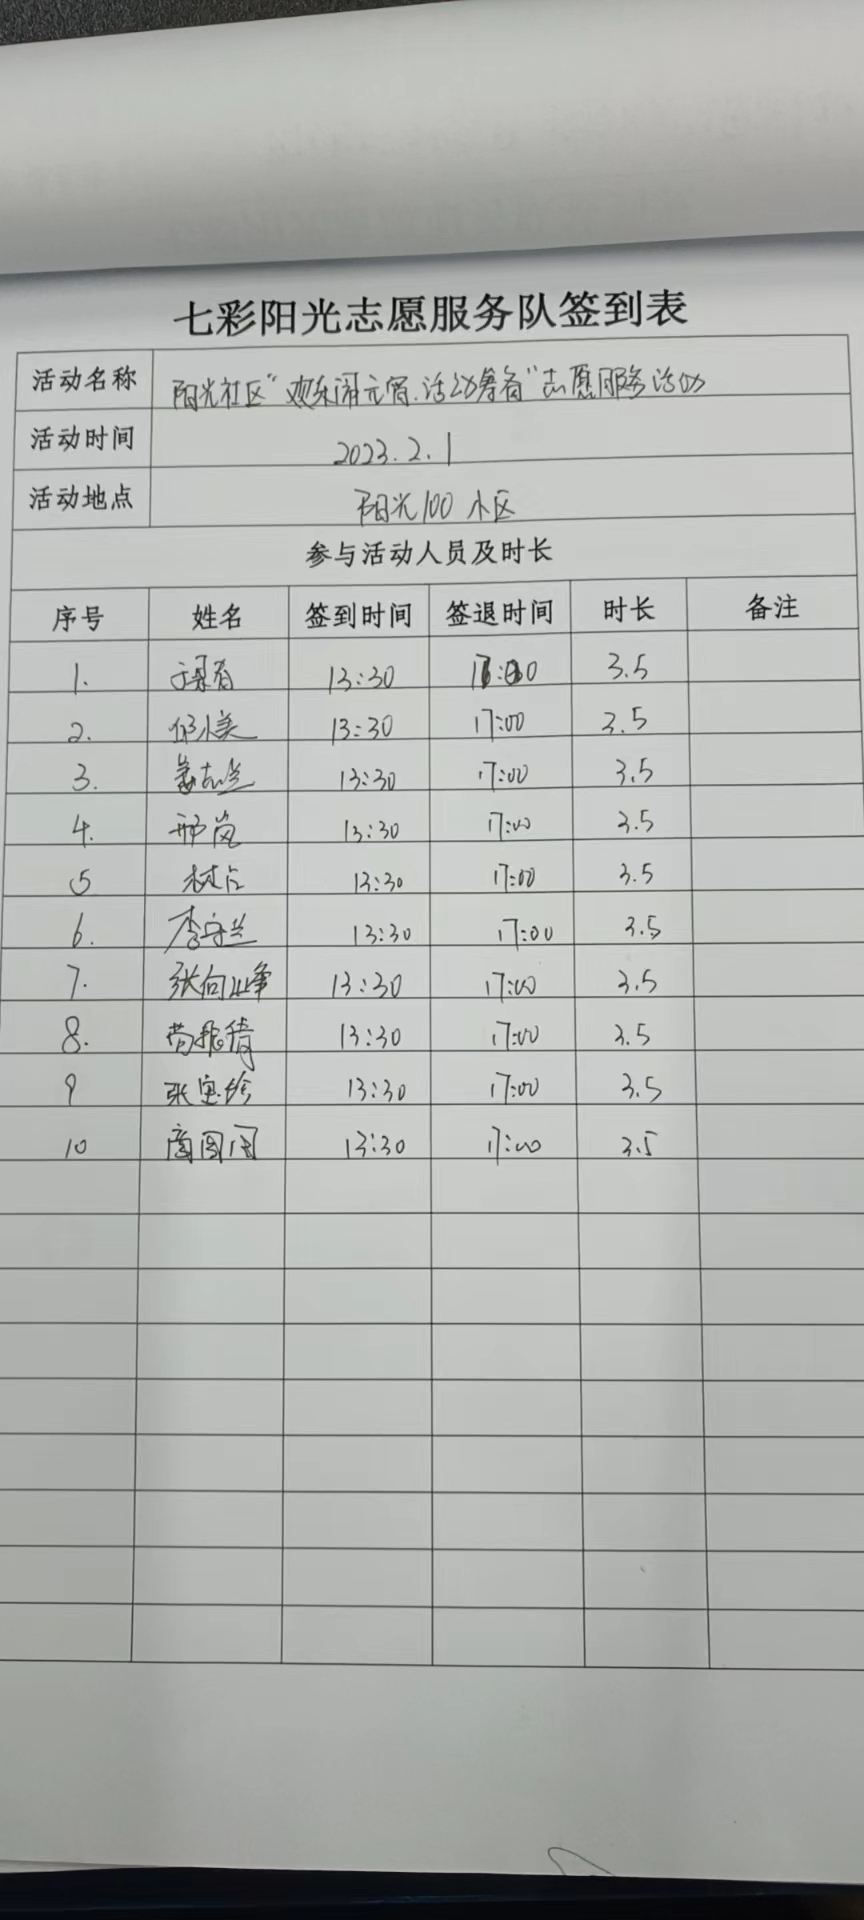 七彩阳光志愿服务队签到表
活动名称 阳光社区“欢乐闹元宵.活动筹备”志愿服务活动
活动时间 2023.2.1
活动地点 阳光100小区
参与活动人员及时长
序号 姓名 签到时间 签退时间 时长 备注
1. 13:30 3.5
2. 邱小美 13:30 17:00 3.5
3. 姜志兰 13:30 17:00 3.5
4. 邢岚 13:30 17:00 3.5
5 13:30 17:00 3.5
6. 李守兰 13:30 17:00 3.5
7. 张向峰 13:30 17:00 3.5
8. 13:30 17:00 3.5
9 张宝珍 13:30 17:00 3.5
10 商图国 13:30 17:00 3.5